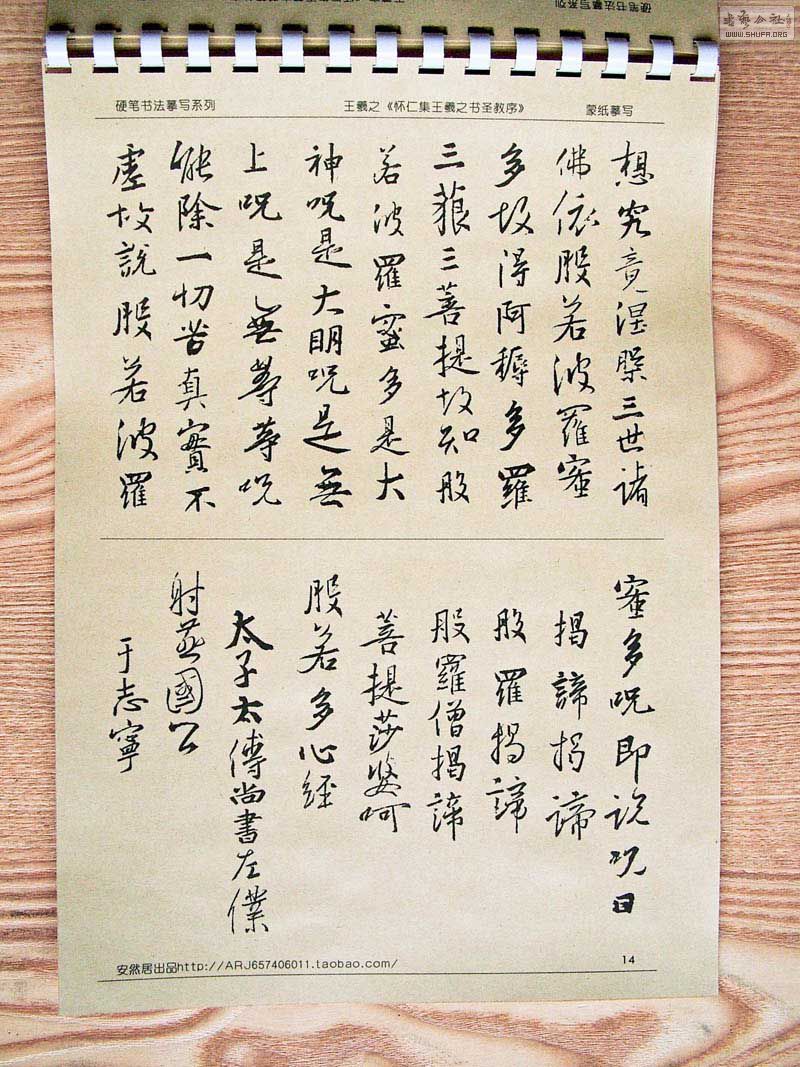 书艺公社
WWW.SHUFA.ORG
硬笔书法摹写系列
硬笔书法摹写系列 王羲之《怀仁集王羲之书圣教序》 蒙纸摹写
想究竟涅槃三世諸
佛依般若波羅蜜
多故得阿耨多羅
三藐三菩提故知般
若波羅蜜多是大
神呪是大明呪是無
上呪是無等等呪
能除一切苦真實不
虛故說般若波羅
蜜多呪即說呪曰
揭諦揭諦
般羅揭諦
般羅僧揭諦
菩提莎婆呵
般若多心經
太子太傅尚書左僕
射燕國公
于志寧
安然居出品http://ARJ657406011.taobao.com/ 14